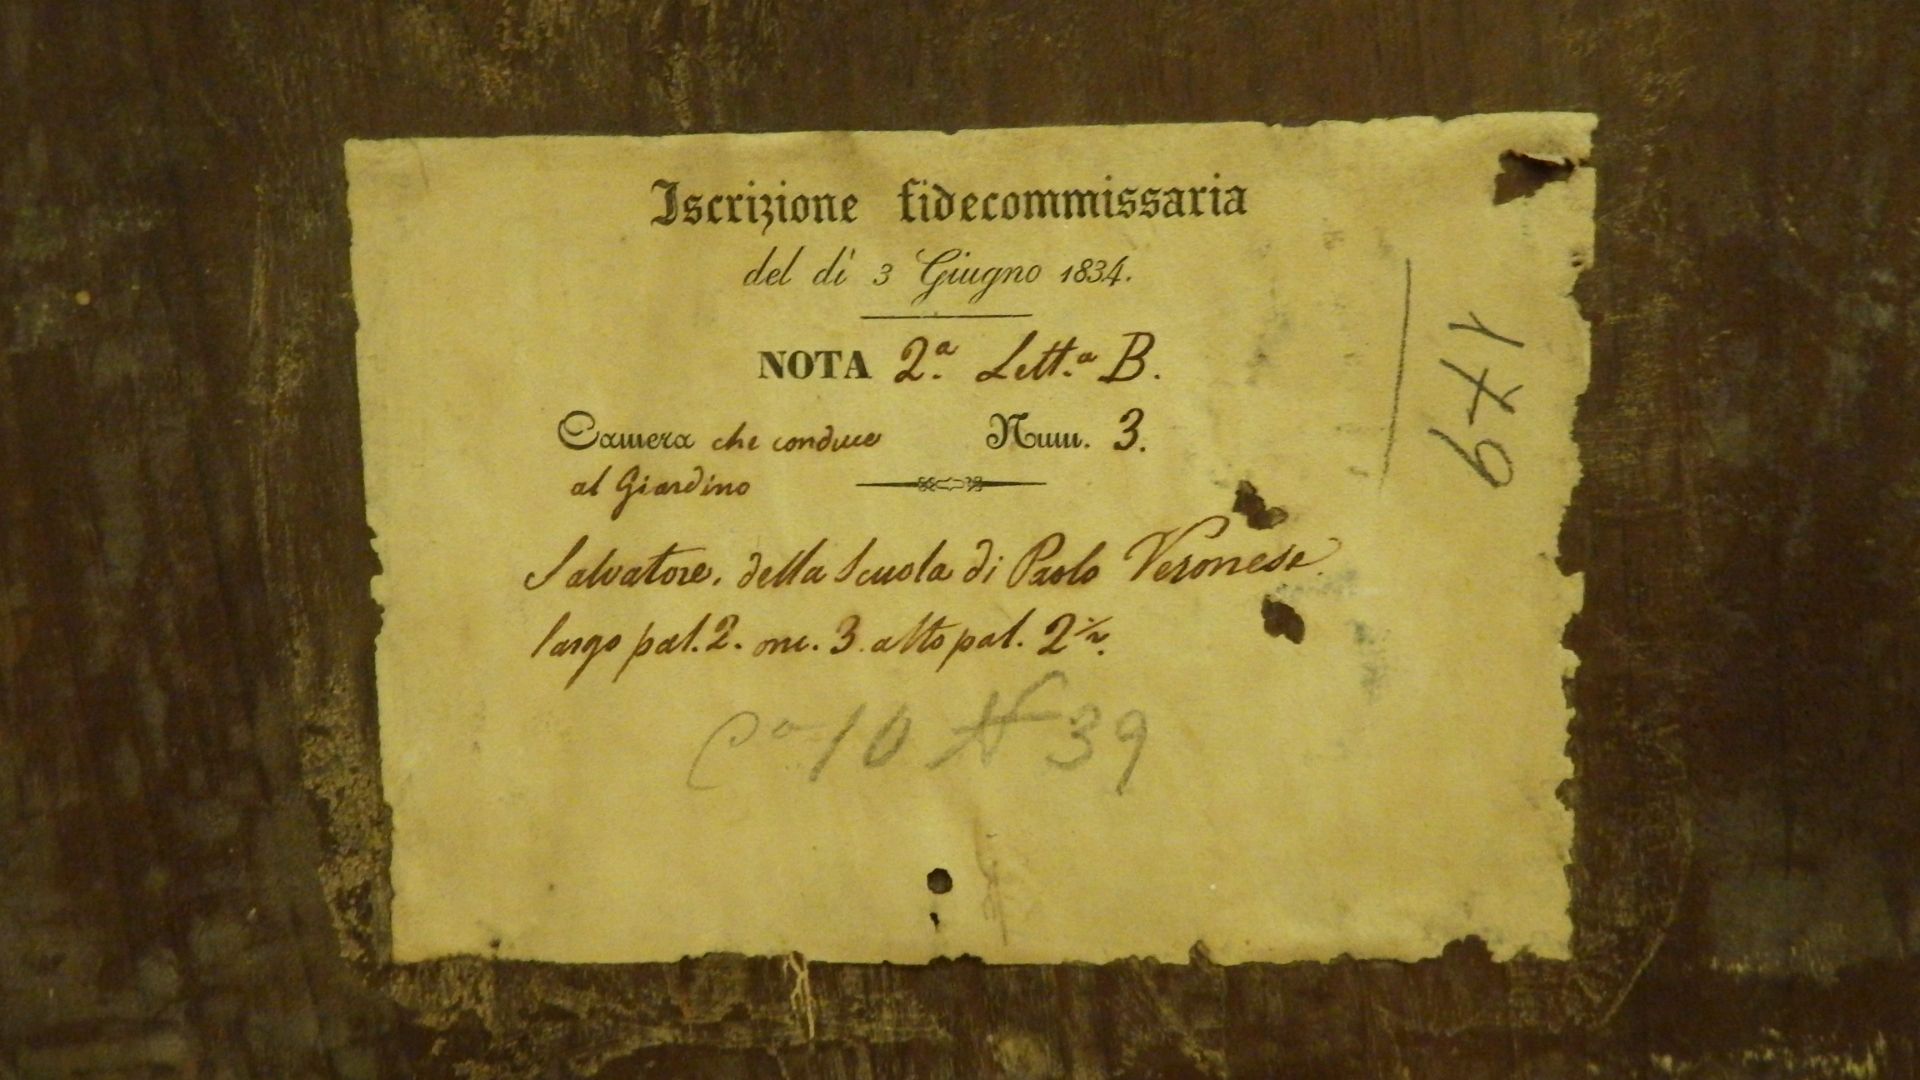 Iscrizione fidecommissaria
del dì 3 Giugno 1834.
NOTA 2.ª Lett.ª B.
Camera che conduce Num. 3.
al Giardino
Salvatore, della Scuola di Paolo Veronese
largo pal. 2. on. 3. alto pal. 2 ½.
Cª 10 N 39
179